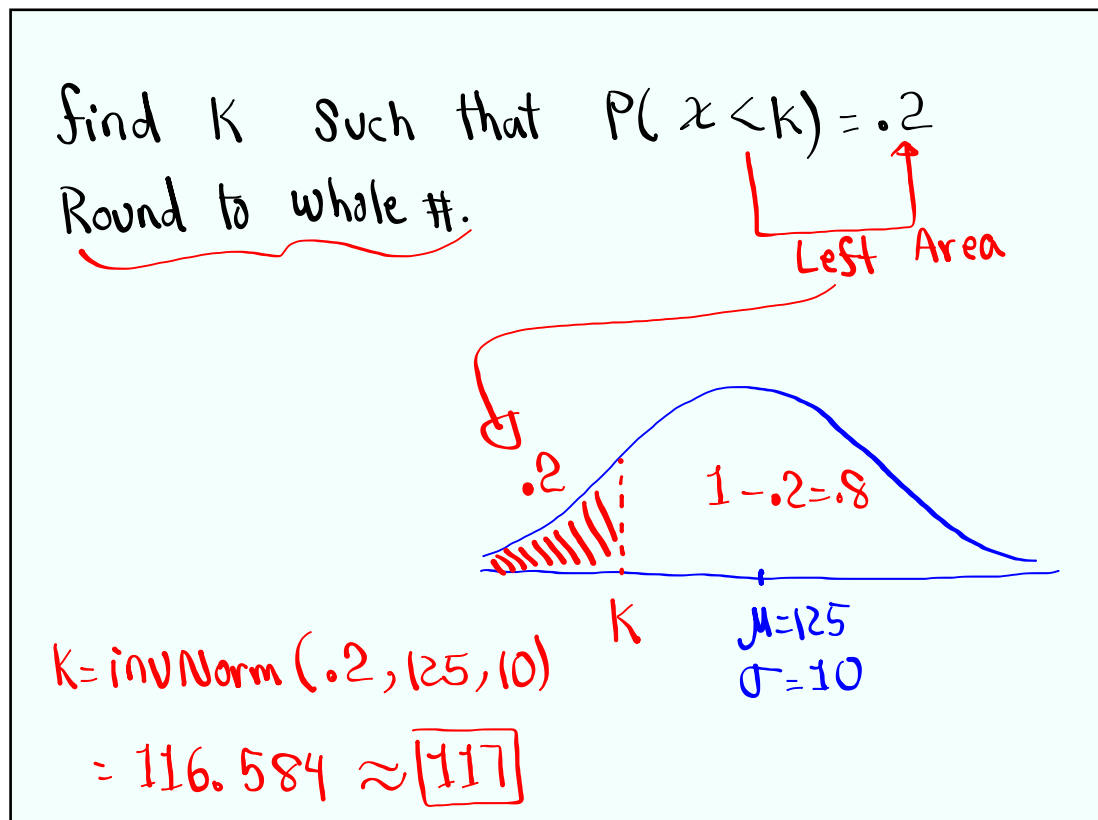 find K such that P( x < k) = .2
Round to whole #.
Left Area
.2
1 - .2 = .8
K
μ=125
σ=10
K= invNorm (.2, 125, 10)
= 116.584 ≈ 117